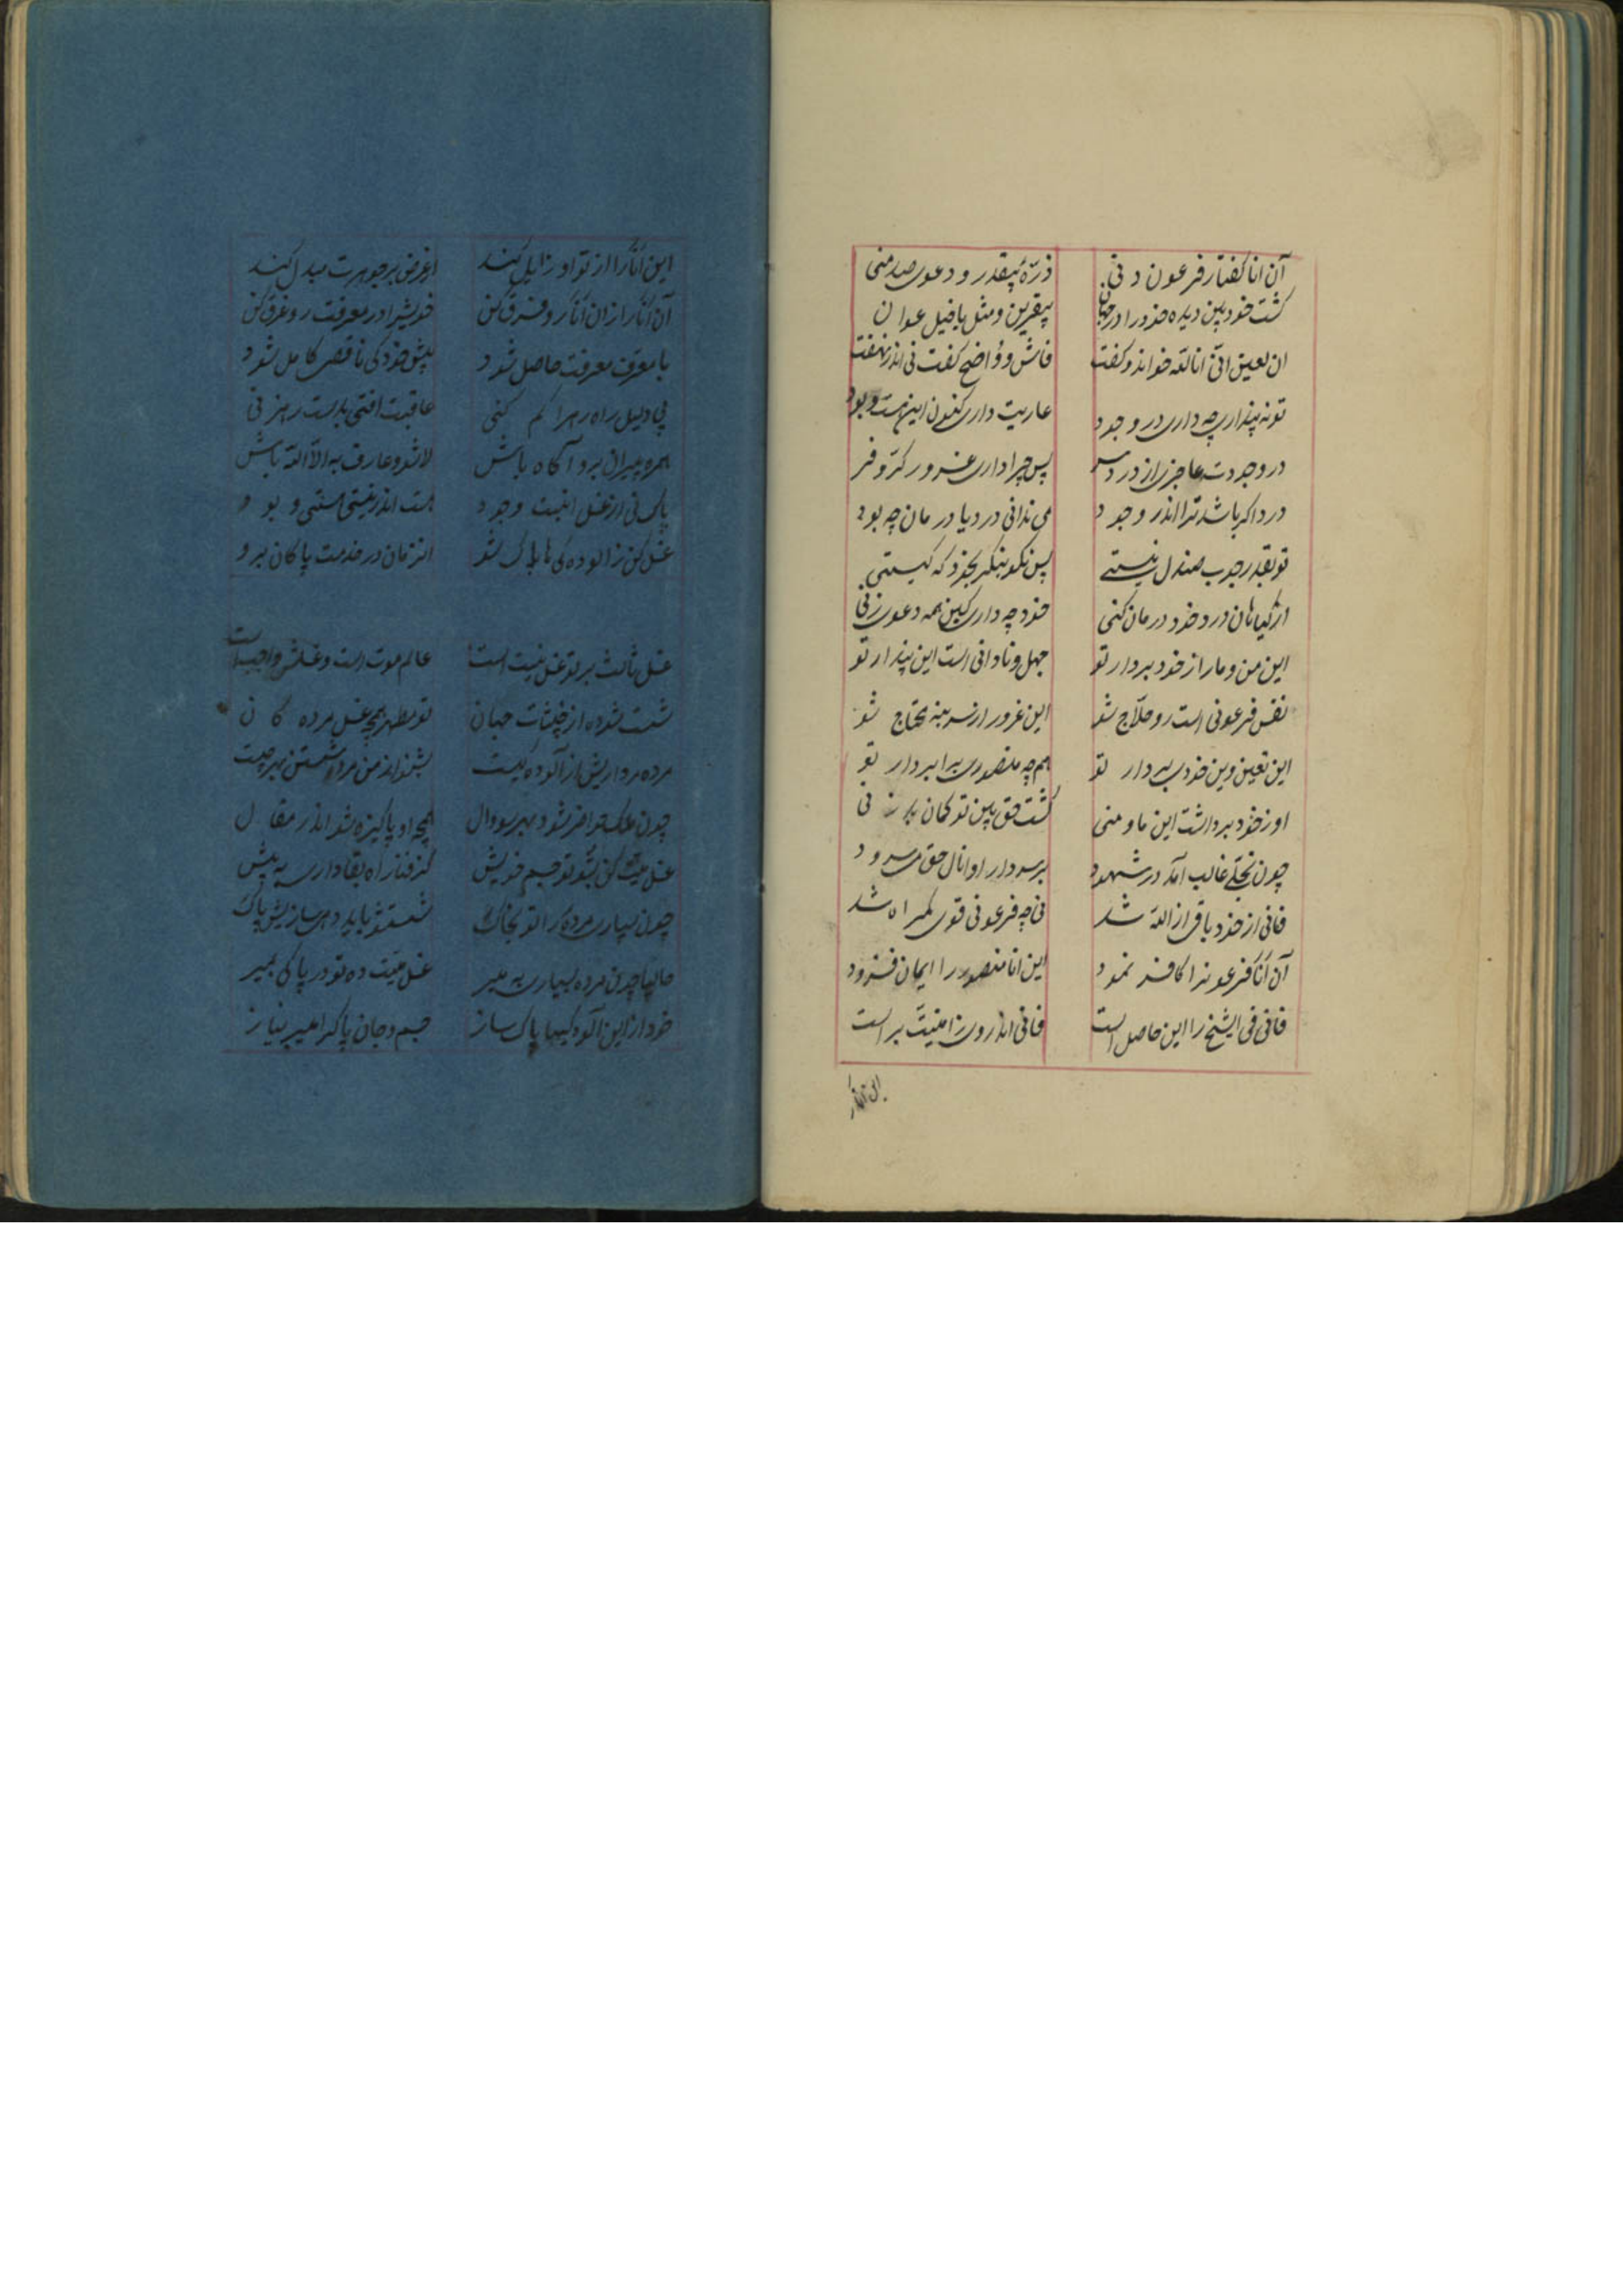 آن انا گفتار فرعون دنی ذرّهٔ بیقدر و دعوی صد منی
گشت خودبین دیده خود را در جهان بیقرین و مثل با خیل عوان
ان لعین انّی انا اللّه خواند و گفت فاش و واضح گفت نی اندر نهفت
تو نه پنداری چه داری در وجود عاریت داری کنون این هست و بود
در وجودت عاجزی از درد سر پس چرا داری غرور کرّ و فر
درد اگر باشد ترا اندر وجود می ندانی درد یا درمان چه بود
تو بقدر چوب صندل نیستی پس نکو بنگر بخود که کیستی
از گیاهان درد خود درمان کنی خود چه داری کین همه دعوی زنی
این من و ما را از خود بردار تو جهل و نادانی است این پندار تو
نفس فرعونی است رو حلّاج شو این غرور از سر بنه محتاج شو
این تعین وین خودی بردار تو همچه منصوری برا بر دار تو
او ز خود برداشت این ما و منی گشت حق بین تو گمان بر نی
چون تجلّی غالب آمد در شهود بر سر دار او انا الحق می سرود
فانی از خود باقی از اللّه شد نی چه فرعونی قوی گمراه شد
آن أنا فرعون را کافر نمود این انا منصور را ایمان فزود
فانی فی الشیخ را این حاصل است فانی اندر وی ز امنیّت بر است
این انا را
این أنا را از تو او زایل کند او عرض بر جوهرت مبدل کند
آن أنا را از ان أنا رو فرق کن خویش را در معرفت رو غرق کن
با معرف معرفت حاصل شود پیش خود کی ناقص کامل شود
بی دلیل راه ره را گم کنی عاقبت افتی بدست رهزنی
همره پیران برو آگاه باش لا شو و عارف به الّا اللّه باش
پاک نی از غسل انیت وجود هست اندر نیستی هستی و بود
غسل کن ز الوده کی ها پاک شو انزمان در خدمت پاکان برو
غسل ثالث بر تو غسل میت است عالم موت است و غسلش واجب است
شست شو ده از خبثات جهان تو مطهر همچه غسل مرده کان
مرده مرداریش از آلوده کیست بشنو از من مرده شستن بهر چیست
چون ملک حاضر شود بهر سووال همچه او پاکیزه شو اندر مقال
غسل میّت کن بشو تو جسم خویش گر فنا راه بقا داری به پیش
چون سپاری مرده را تو بخاک شستشو باید دهی سازیش پاک
غسل میّت ده تو در پاکی بمیر
خود از این آلوده کیها پاک ساز جسم و جان پاک را میر نیاز